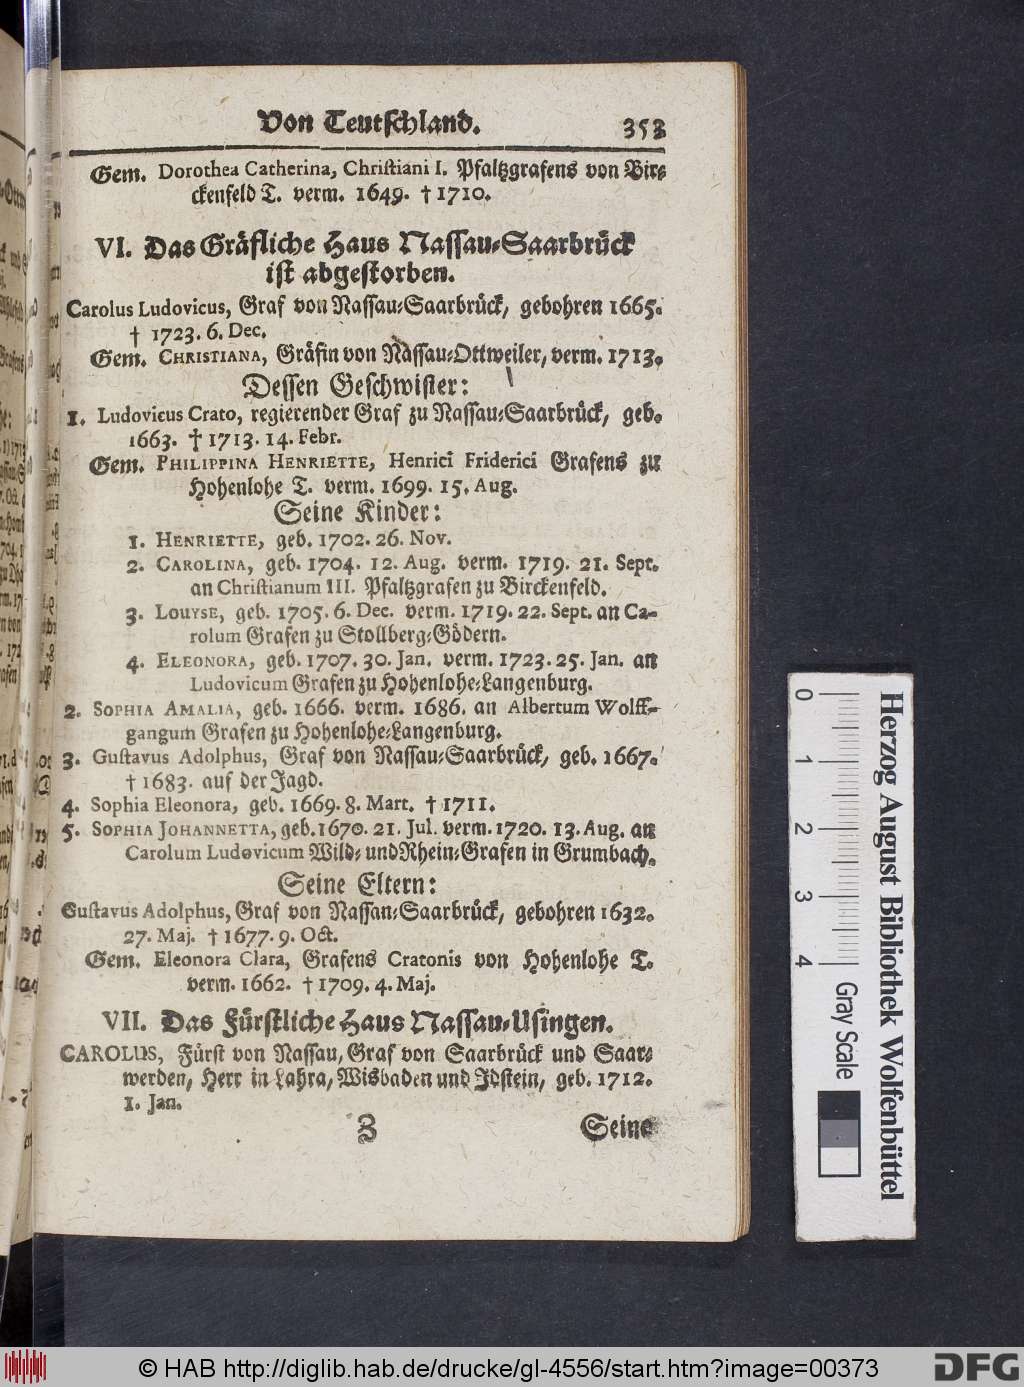 Von Teutschland. 353
Gem. Dorothea Catherina, Christiani I. Pfaltzgrafens von Bir-
ckenfeld T. verm. 1649. † 1710.
VI. Das Gräfliche Haus Nassau-Saarbrück
ist abgestorben.
Carolus Ludovicus, Graf von Nassau-Saarbrück, gebohren 1665.
† 1723. 6. Dec.
Gem. CHRISTIANA, Gräfin von Nassau-Ottweiler, verm. 1713.
Dessen Geschwister:
1. Ludovicus Crato, regierender Graf zu Nassau-Saarbrück, geb.
1663. † 1713. 14. Febr.
Gem. PHILIPPINA HENRIETTE, Henrici Friderici Grafens zu
Hohenlohe T. verm. 1699. 15. Aug.
Seine Kinder:
1. HENRIETTE, geb. 1702. 26. Nov.
2. CAROLINA, geb. 1704. 12. Aug. verm. 1719. 21. Sept.
an Christianum III. Pfaltzgrafen zu Birckenfeld.
3. LOUYSE, geb. 1705. 6. Dec. verm. 1719. 22. Sept. an Ca-
rolum Grafen zu Stollberg-Gödern.
4. ELEONORA, geb. 1707. 30. Jan. verm. 1723. 25. Jan. an
Ludovicum Grafen zu Hohenlohe-Langenburg.
2. SOPHIA AMALIA, geb. 1666. verm. 1686. an Albertum Wolff-
gangum Grafen zu Hohenlohe-Langenburg.
3. Gustavus Adolphus, Graf von Nassau-Saarbrück, geb. 1667.
† 1683. auf der Jagd.
4. Sophia Eleonora, geb. 1669. 8. Mart. † 1711.
5. SOPHIA JOHANNETTA, geb. 1670. 21. Jul. verm. 1720. 13. Aug. an
Carolum Ludovicum Wild- und Rhein-Grafen in Grumbach.
Seine Eltern:
Gustavus Adolphus, Graf von Nassau-Saarbrück, gebohren 1632.
27. Maj. † 1677. 9. Oct.
Gem. Eleonora Clara, Grafens Cratonis von Hohenlohe T.
verm. 1662. † 1709. 4. Maj.
VII. Das Fürstliche Haus Nassau-Usingen.
CAROLUS, Fürst von Nassau, Graf von Saarbrück und Saar-
werden, Herr in Lahra, Wisbaden und Idstein, geb. 1712.
1. Jan.
Z Seine
0 1 2 3 4 Gray Scale
Herzog August Bibliothek Wolfenbüttel
© HAB http://diglib.hab.de/drucke/gl-4556/start.htm?image=00373
DFG